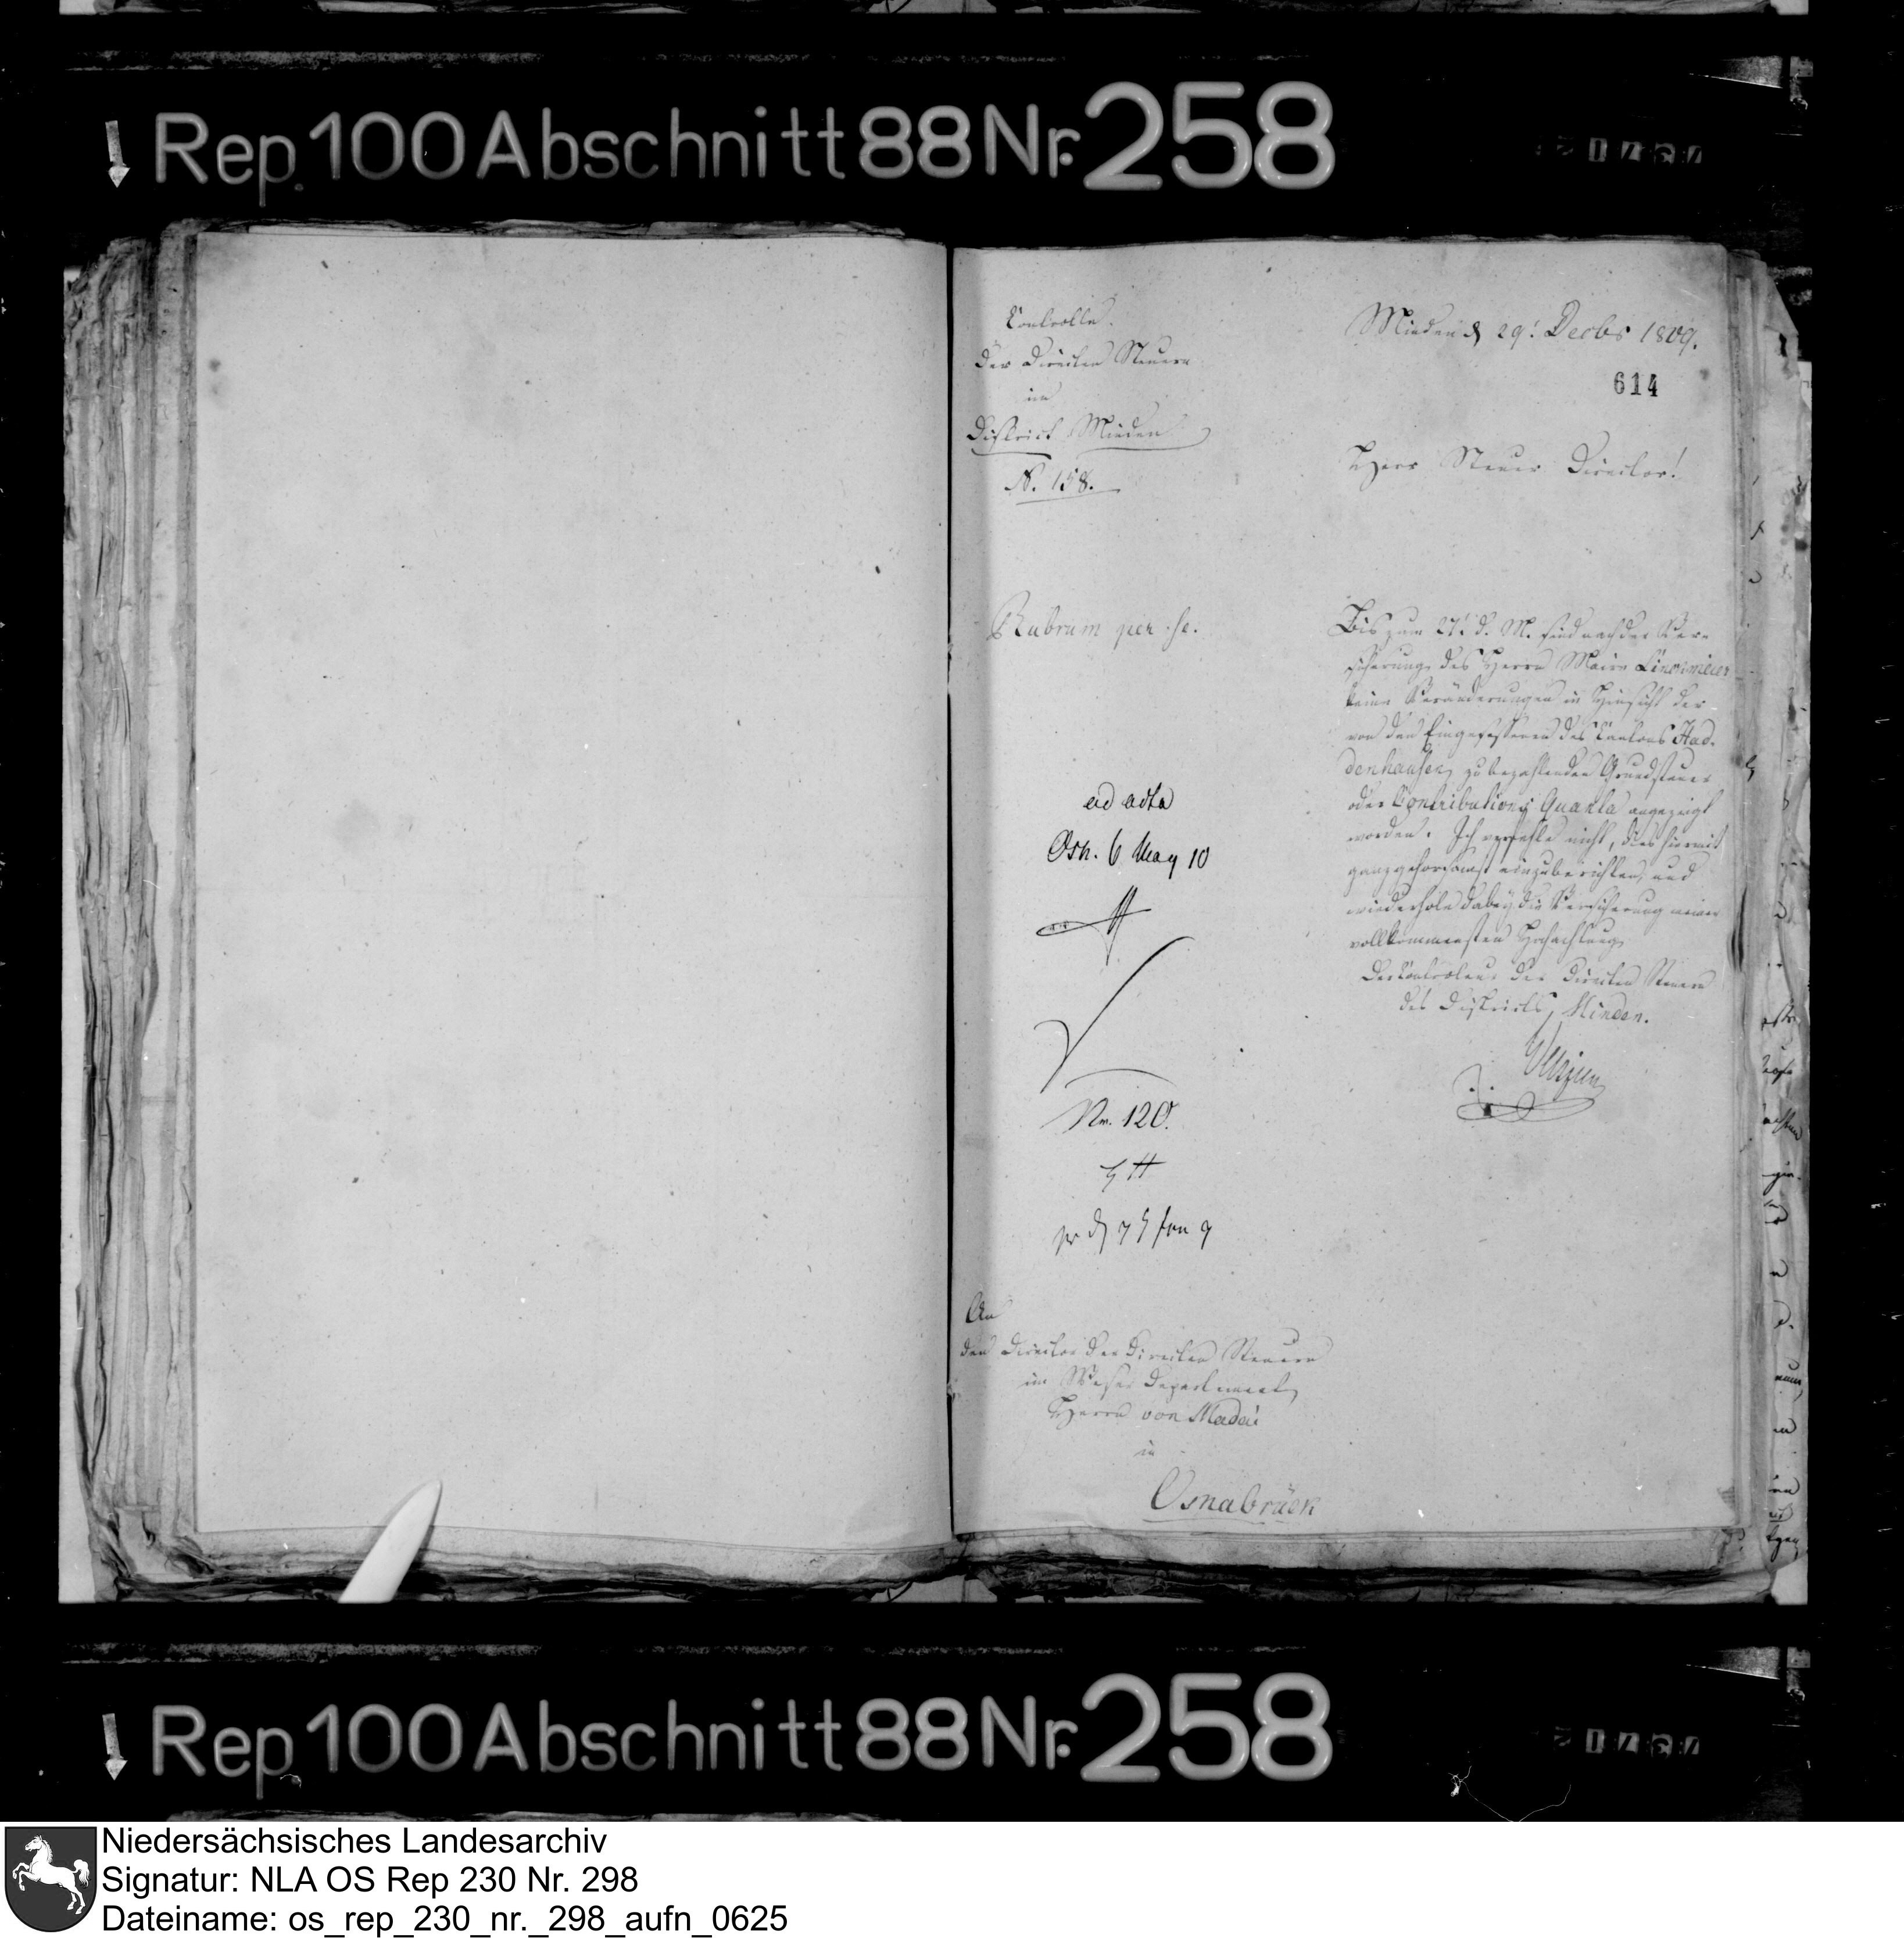 Rep. 100 Abschnitt 88 Nr. 258
Controlle
der Directen Steuern
im
District Minden
N. 158.
Minden d 29t. Decbr 1809.
614
Herr Steuer Director!
Rubrum per se.
Bis zum 27t. d. M. sind nach der Ver-
sicherung des Herrn Maire
keine Veränderungen in Hinsicht der
von den Eingesessenen des Cantons Had-
denhausen zu bezahlenden Grundsteuer
oder Contributions Quanta angezeigt
worden. Ich verfehle nicht, dies hiermit
ganz gehorsamst einzuberichten, und
wiederhole dabey die Versicherung meiner
vollkommensten Hochachtung
Der Controleur der Directen Steuern
des Districts Minden.
ad acta
Osn. 6 May 10
Nr. 120.
An
den Director der Directen Steuern
im Weser Departement,
Herrn von Madai
in
Osnabrück
Rep. 100 Abschnitt 88 Nr. 258
Niedersächsisches Landesarchiv
Signatur: NLA OS Rep 230 Nr. 298
Dateiname: os_rep_230_nr._298_aufn_0625